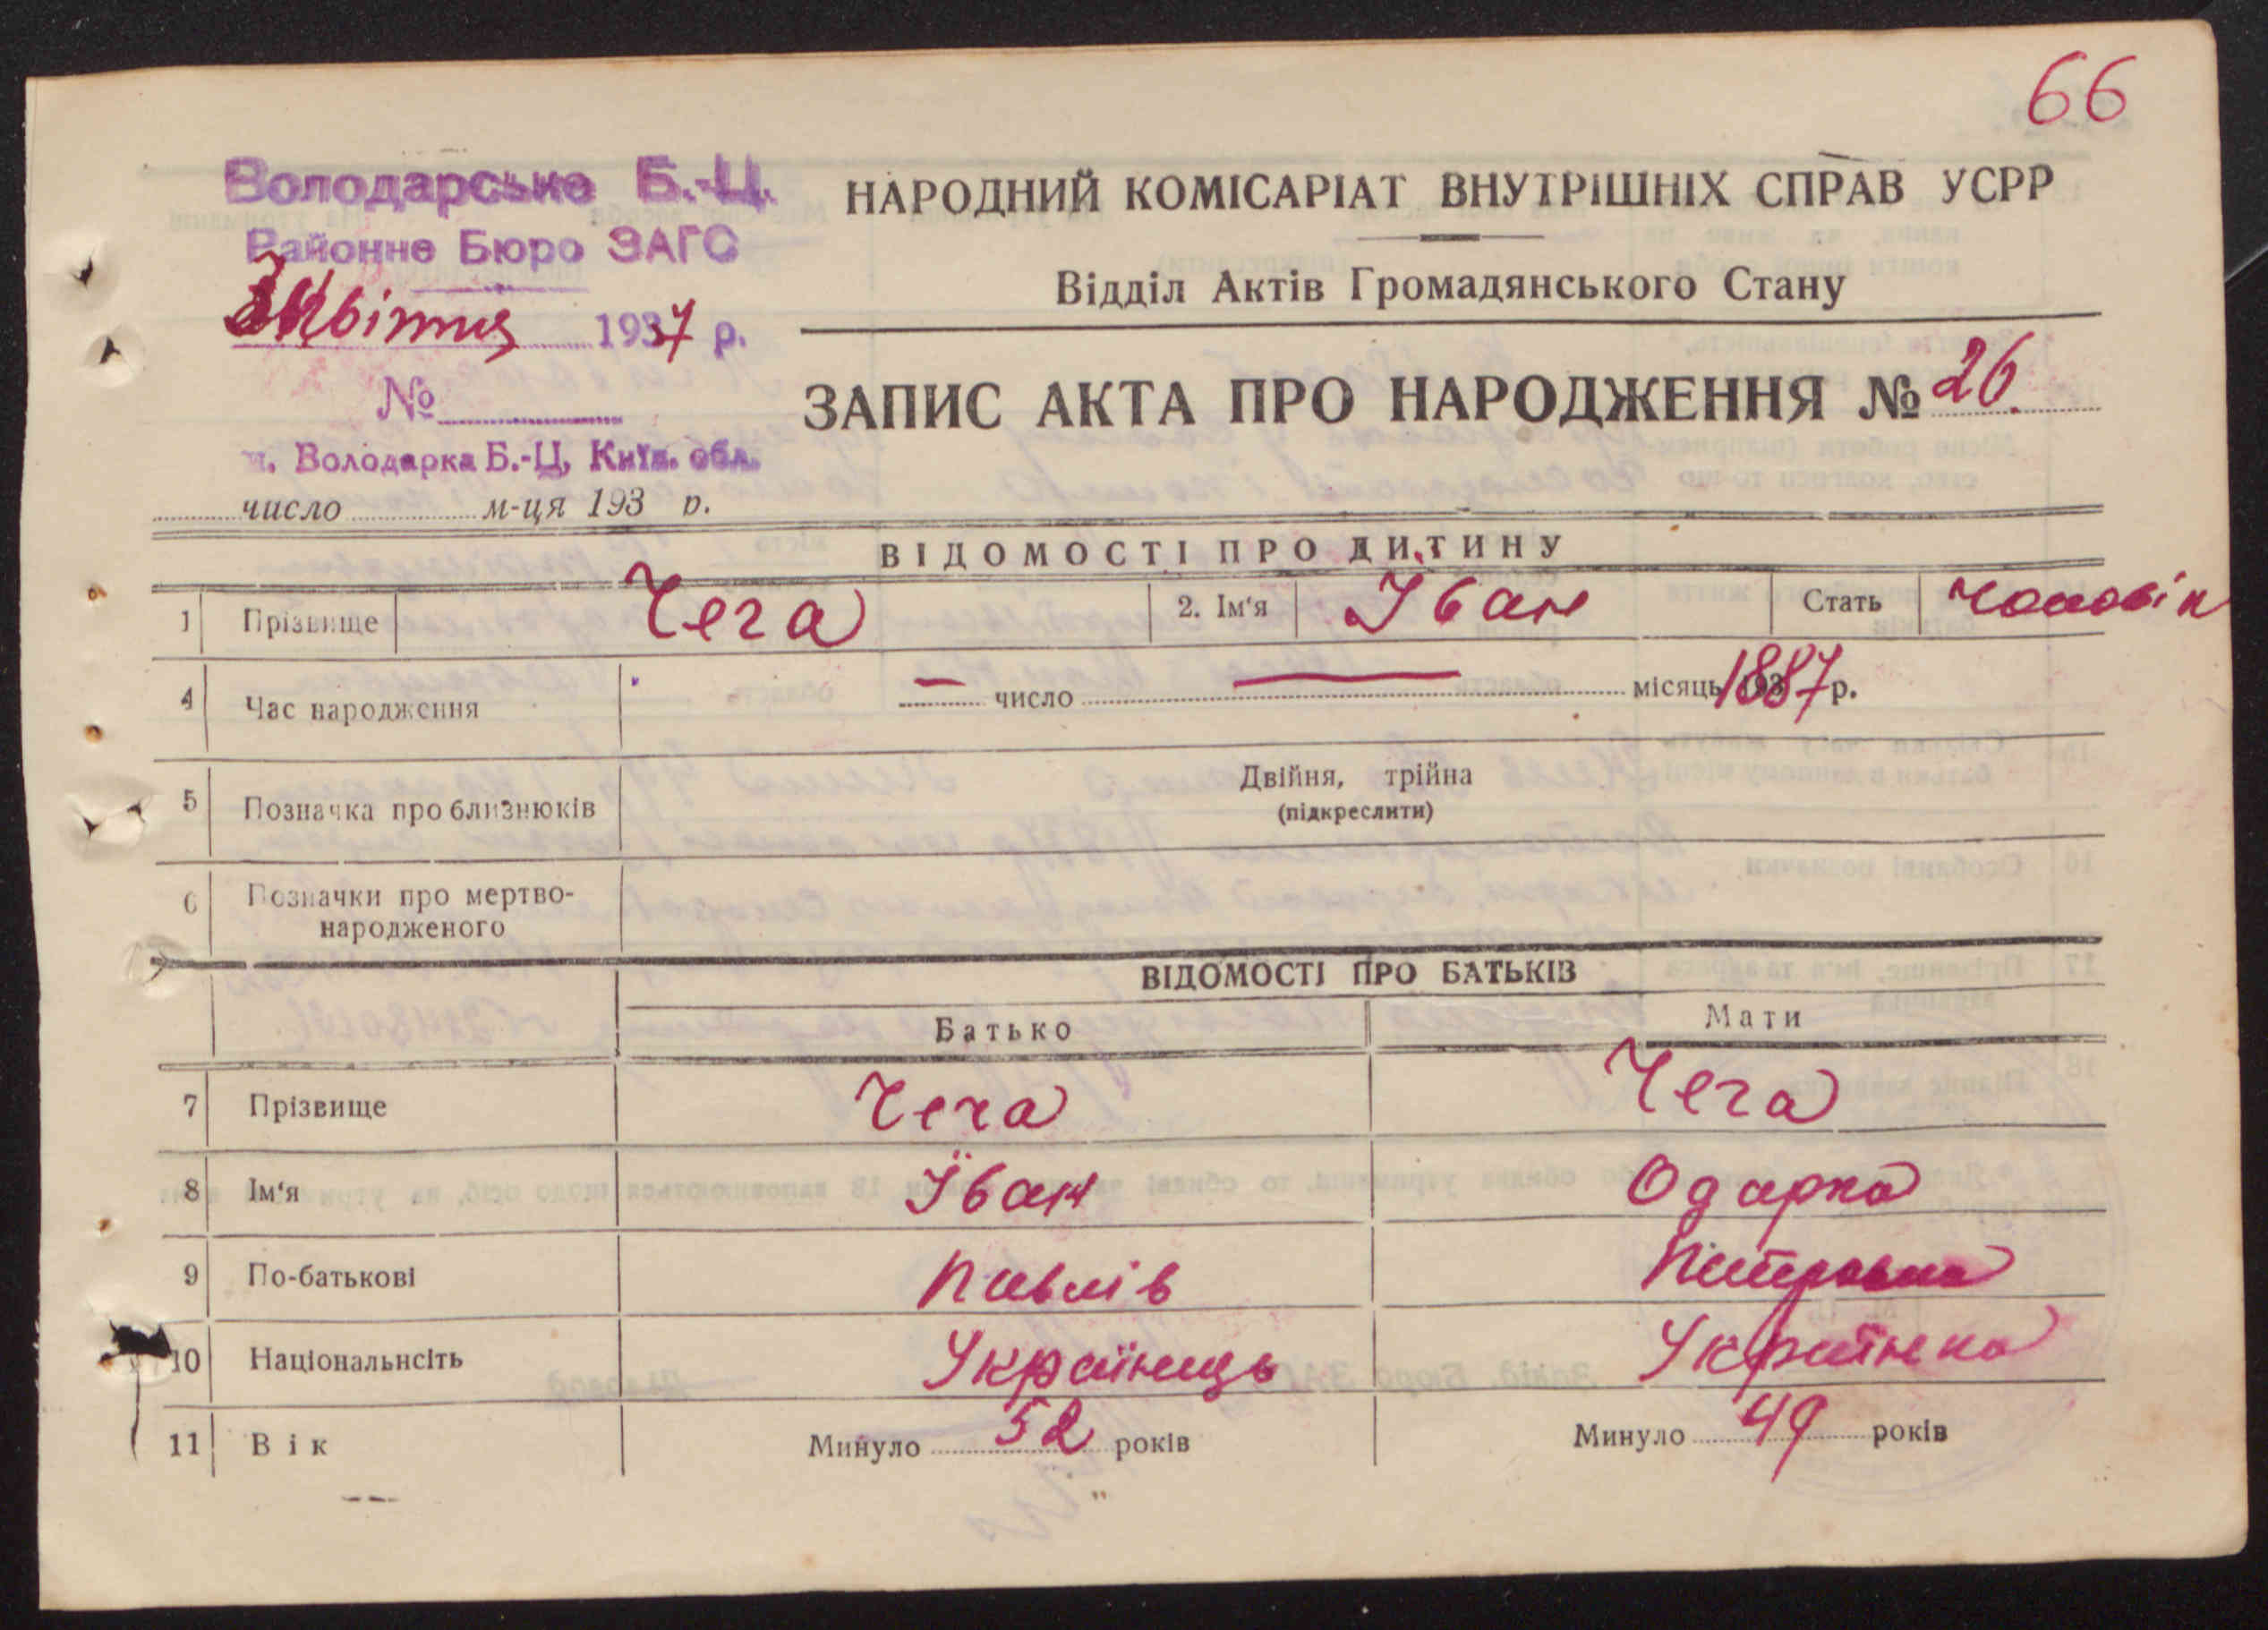 66
Володарське Б.-Ц.
Районне Бюро ЗАГС
Квітня 1937 р.
№
м. Володарка Б.-Ц, Київ. обл.
число м-ця 193 р.
НАРОДНИЙ КОМІСАРІАТ ВНУТРІШНІХ СПРАВ УСРР
Відділ Актів Громадянського Стану
ЗАПИС АКТА ПРО НАРОДЖЕННЯ № 26.
ВІДОМОСТІ ПРО ДИТИНУ
1 Прізвище Чега 2. Ім'я Іван Стать Чоловік
4 Час народження — число — місяць 1887 р.
5 Позначка про близнюків Двійня, трійна
(підкреслити)
6 Позначки про мертво-
народженого
ВІДОМОСТІ ПРО БАТЬКІВ
Батько Мати
7 Прізвище Чега Чега
8 Ім'я Іван Одарка
9 По-батькові Павлів Петровна
10 Національнсіть Українець Українка
11 Вік Минуло 52 років Минуло 49 років